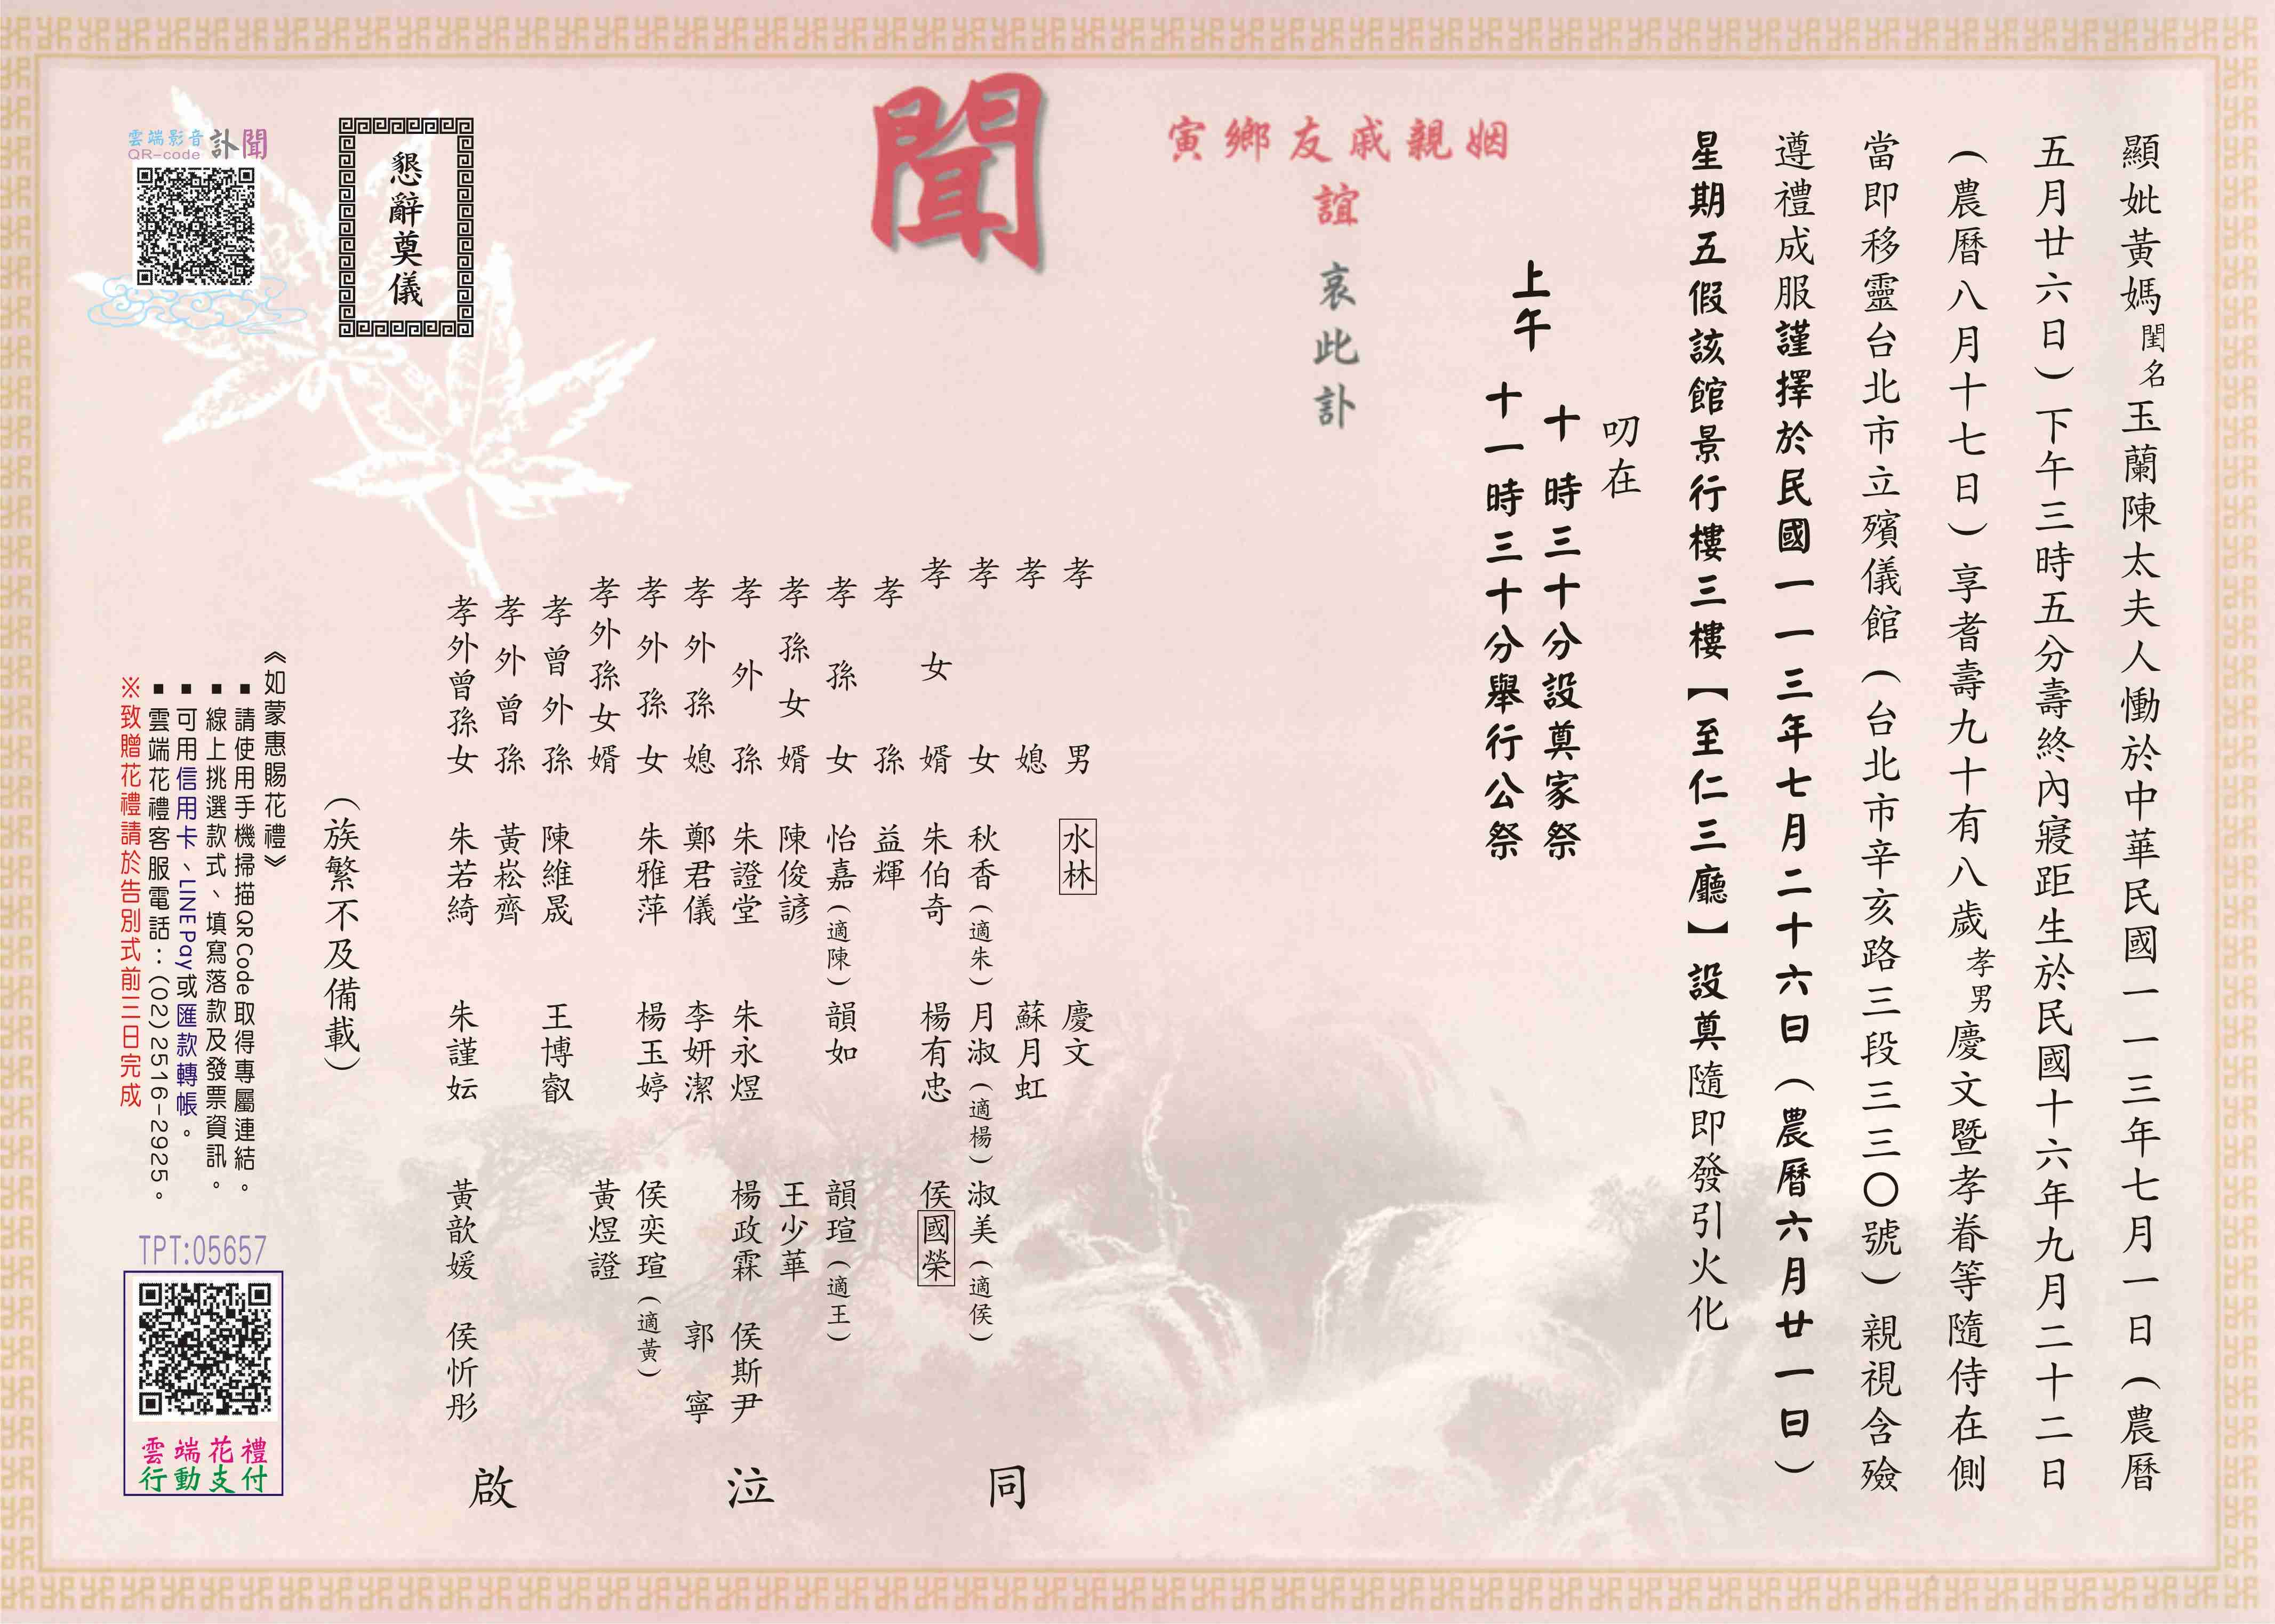 顯妣黃媽閨名玉蘭陳太夫人慟於中華民國一一三年七月一日（農曆
五月廿六日）下午三時五分壽終內寢距生於民國十六年九月二十二日
（農曆八月十七日）享耆壽九十有八歲孝男慶文暨孝眷等隨侍在側
當即移靈台北市立殯儀館（台北市辛亥路三段三三〇號）親視含殮
遵禮成服謹擇於民國一一三年七月二十六日（農曆六月廿一日）
星期五假該館景行樓三樓【至仁三廳】設奠隨即發引火化
叨在
上午
十時三十分設奠家祭
十一時三十分舉行公祭
姻親戚友鄉寅
誼
哀此訃
聞
孝男 水林 慶文
孝媳 蘇月虹
孝女 秋香（適朱） 月淑（適楊） 淑美（適侯）
孝女婿 朱伯奇 楊有忠 侯國榮
孝孫 益輝
孝孫女 怡嘉（適陳） 韻如 韻瑄（適王）
孝孫女婿 陳俊諺 王少華
孝外孫 朱證堂 朱永煜 楊政霖 侯斯尹
孝外孫媳 鄭君儀 李妍潔 郭寧
孝外孫女 朱雅萍 楊玉婷 侯奕瑄（適黃）
孝外孫女婿 黃煜證
孝曾外孫 陳維晟 王博叡
孝外曾孫 黃崧齊
孝外曾孫女 朱若綺 朱謹妘 黃歆媛 侯忻彤
同泣啟
（族繁不及備載）
懇辭奠儀
雲端影音
QR-code
訃聞
《如蒙惠賜花禮》
▪請使用手機掃描QR Code取得專屬連結。
▪線上挑選款式、填寫落款及發票資訊。
▪可用信用卡、LINE Pay或匯款轉帳。
▪雲端花禮客服電話：(02)2516-2925。
※致贈花禮請於告別式前三日完成
TPT:05657
雲端花禮
行動支付